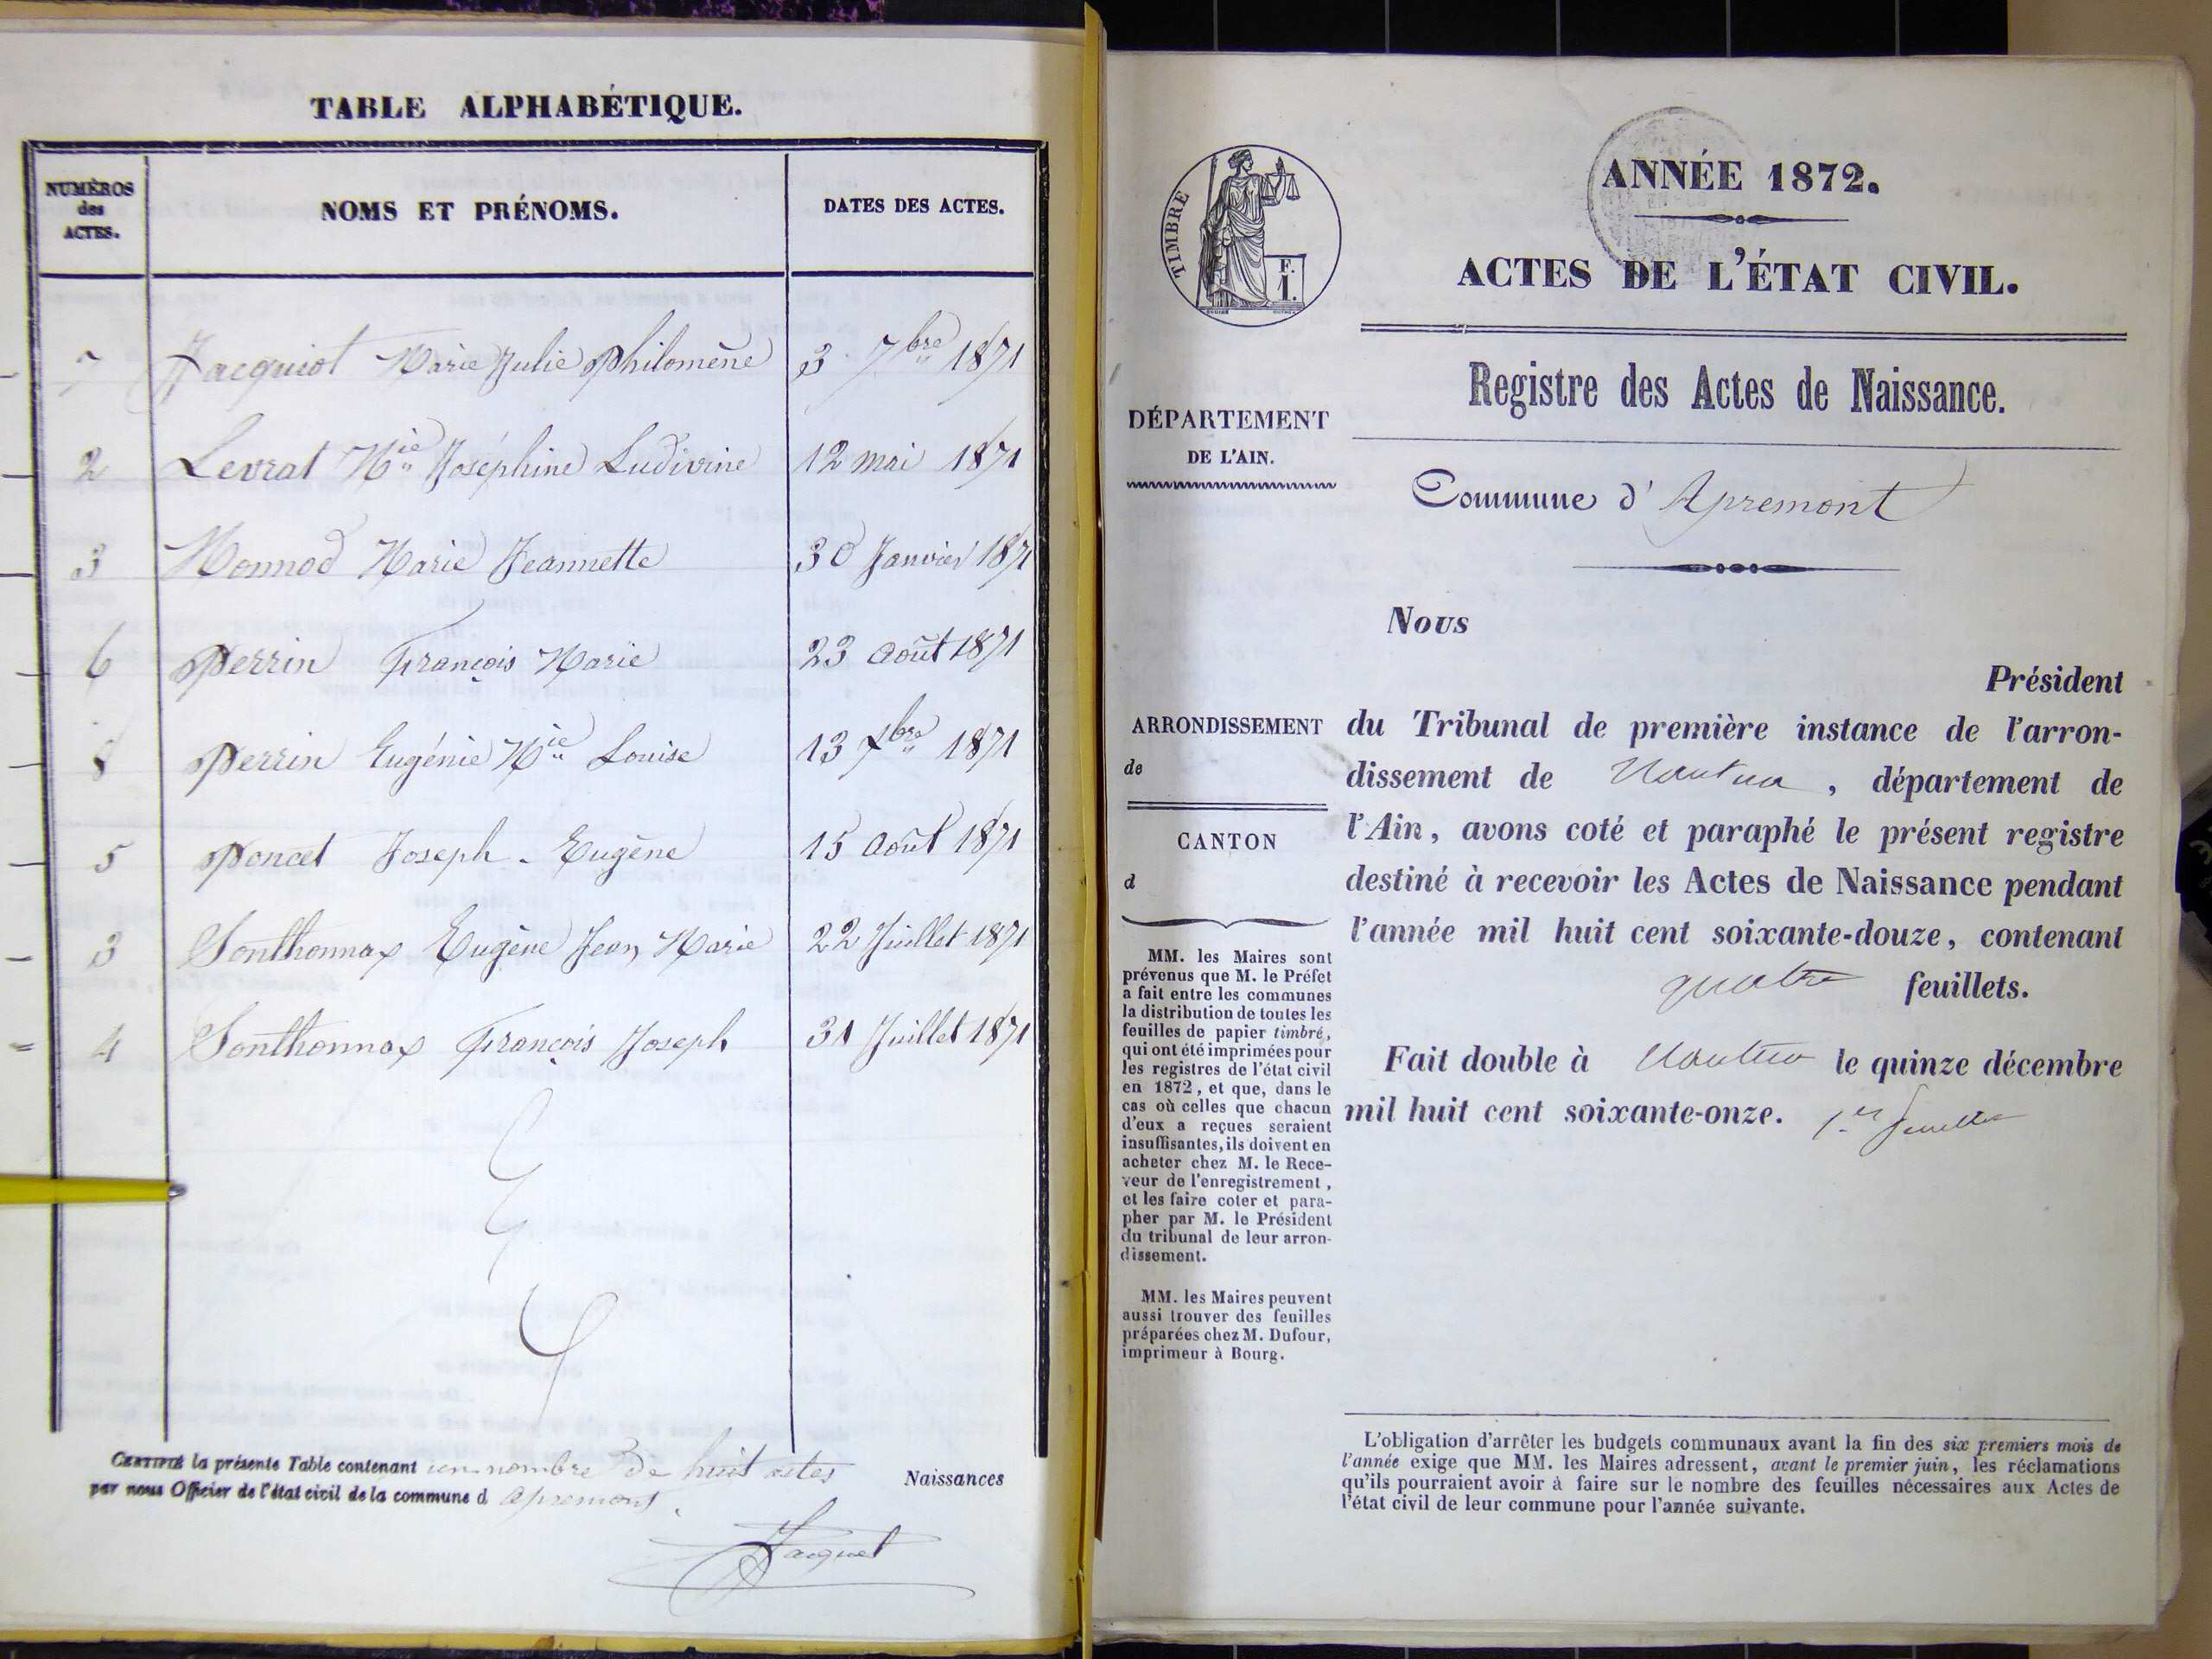 TABLE ALPHABÉTIQUE.
NUMÉROS des ACTES. NOMS ET PRÉNOMS. DATES DES ACTES.
7 Jacquiot Marie Julie Philomène 3 7bre 1871
2 Levrat Mie Joséphine Ludivine 12 mai 1871
3 Monnod Marie Jeannette 30 Janvier 1871
6 Perrin François Marie 23 Août 1871
8 Perrin Eugénie Mie Louise 13 xbre 1871
5 Poncet Joseph Eugène 15 Août 1871
3 Sonthonnax Eugène Jean Marie 22 Juillet 1871
4 Sonthonnax François Joseph 31 Juillet 1871
CERTIFIÉ la présente Table contenant un nombre de huit actes Naissances
par nous Officier de l'état civil de la commune d Apremont.
Jacquet
TIMBRE
F.
1.
ANNÉE 1872.
ACTES DE L'ÉTAT CIVIL.
Registre des Actes de Naissance.
DÉPARTEMENT
DE L'AIN.
Commune d'Apremont
Nous
Président
ARRONDISSEMENT
de
CANTON
d
du Tribunal de première instance de l'arron-
dissement de Nantua, département de
l'Ain, avons coté et paraphé le présent registre
destiné à recevoir les Actes de Naissance pendant
l'année mil huit cent soixante-douze, contenant
quatre feuillets.
Fait double à Nantua le quinze décembre
mil huit cent soixante-onze. 1er feuillet
MM. les Maires sont
prévenus que M. le Préfet
a fait entre les communes
la distribution de toutes les
feuilles de papier timbré,
qui ont été imprimées pour
les registres de l'état civil
en 1872, et que, dans le
cas où celles que chacun
d'eux a reçues seraient
insuffisantes, ils doivent en
acheter chez M. le Rece-
veur de l'enregistrement,
et les faire coter et para-
pher par M. le Président
du tribunal de leur arron-
dissement.
MM. les Maires peuvent
aussi trouver des feuilles
préparées chez M. Dufour,
imprimeur à Bourg.
L'obligation d'arrêter les budgets communaux avant la fin des six premiers mois de
l'année exige que MM. les Maires adressent, avant le premier juin, les réclamations
qu'ils pourraient avoir à faire sur le nombre des feuilles nécessaires aux Actes de
l'état civil de leur commune pour l'année suivante.